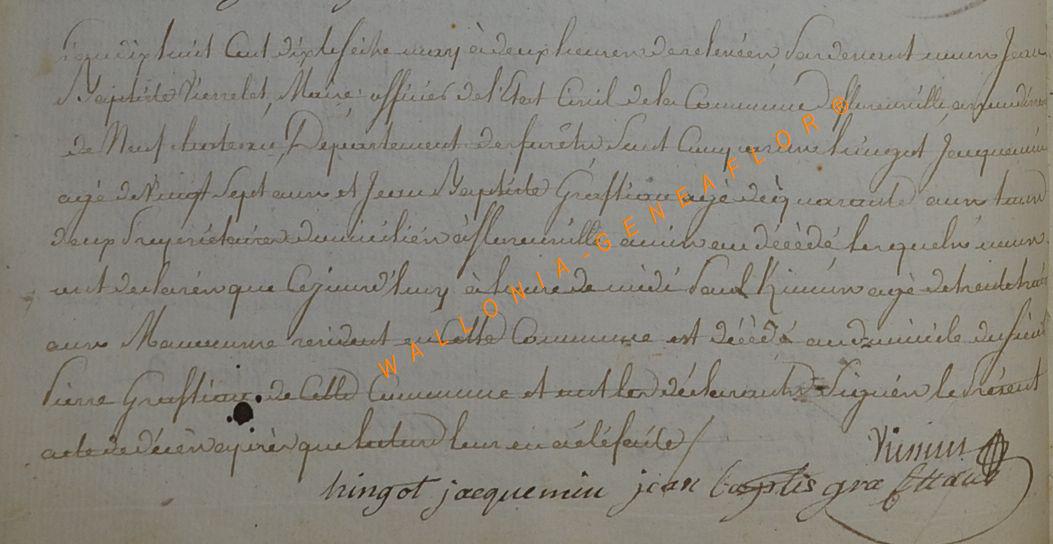 dix huit Cent dix sept seize may à deux heures de relevée, Pardevant nous Jean
Baptiste Pierret Maire officier de l'Etat Civil de la Commune
de Neufchateau, Departement de forêts sont Comparu hingot Jacquemin
agé de Vingt Sept ans et Jean Baptiste agé de quarante ans tous
deux Propriétaires domiciliés à voisin au décédé lesquels nous
ont declarés que Cejourd'huy à heure de midi Paul agé de trente trois
ans resident en Cette Commune est décédé au domicile du sieur
Pierre de Cette Commune et ont les déclarants Signés le présent
acte de décès après que lecture leur en a été faite /
hingot jacquemin jean baptis
WALLONIA-GENEAFLOR®